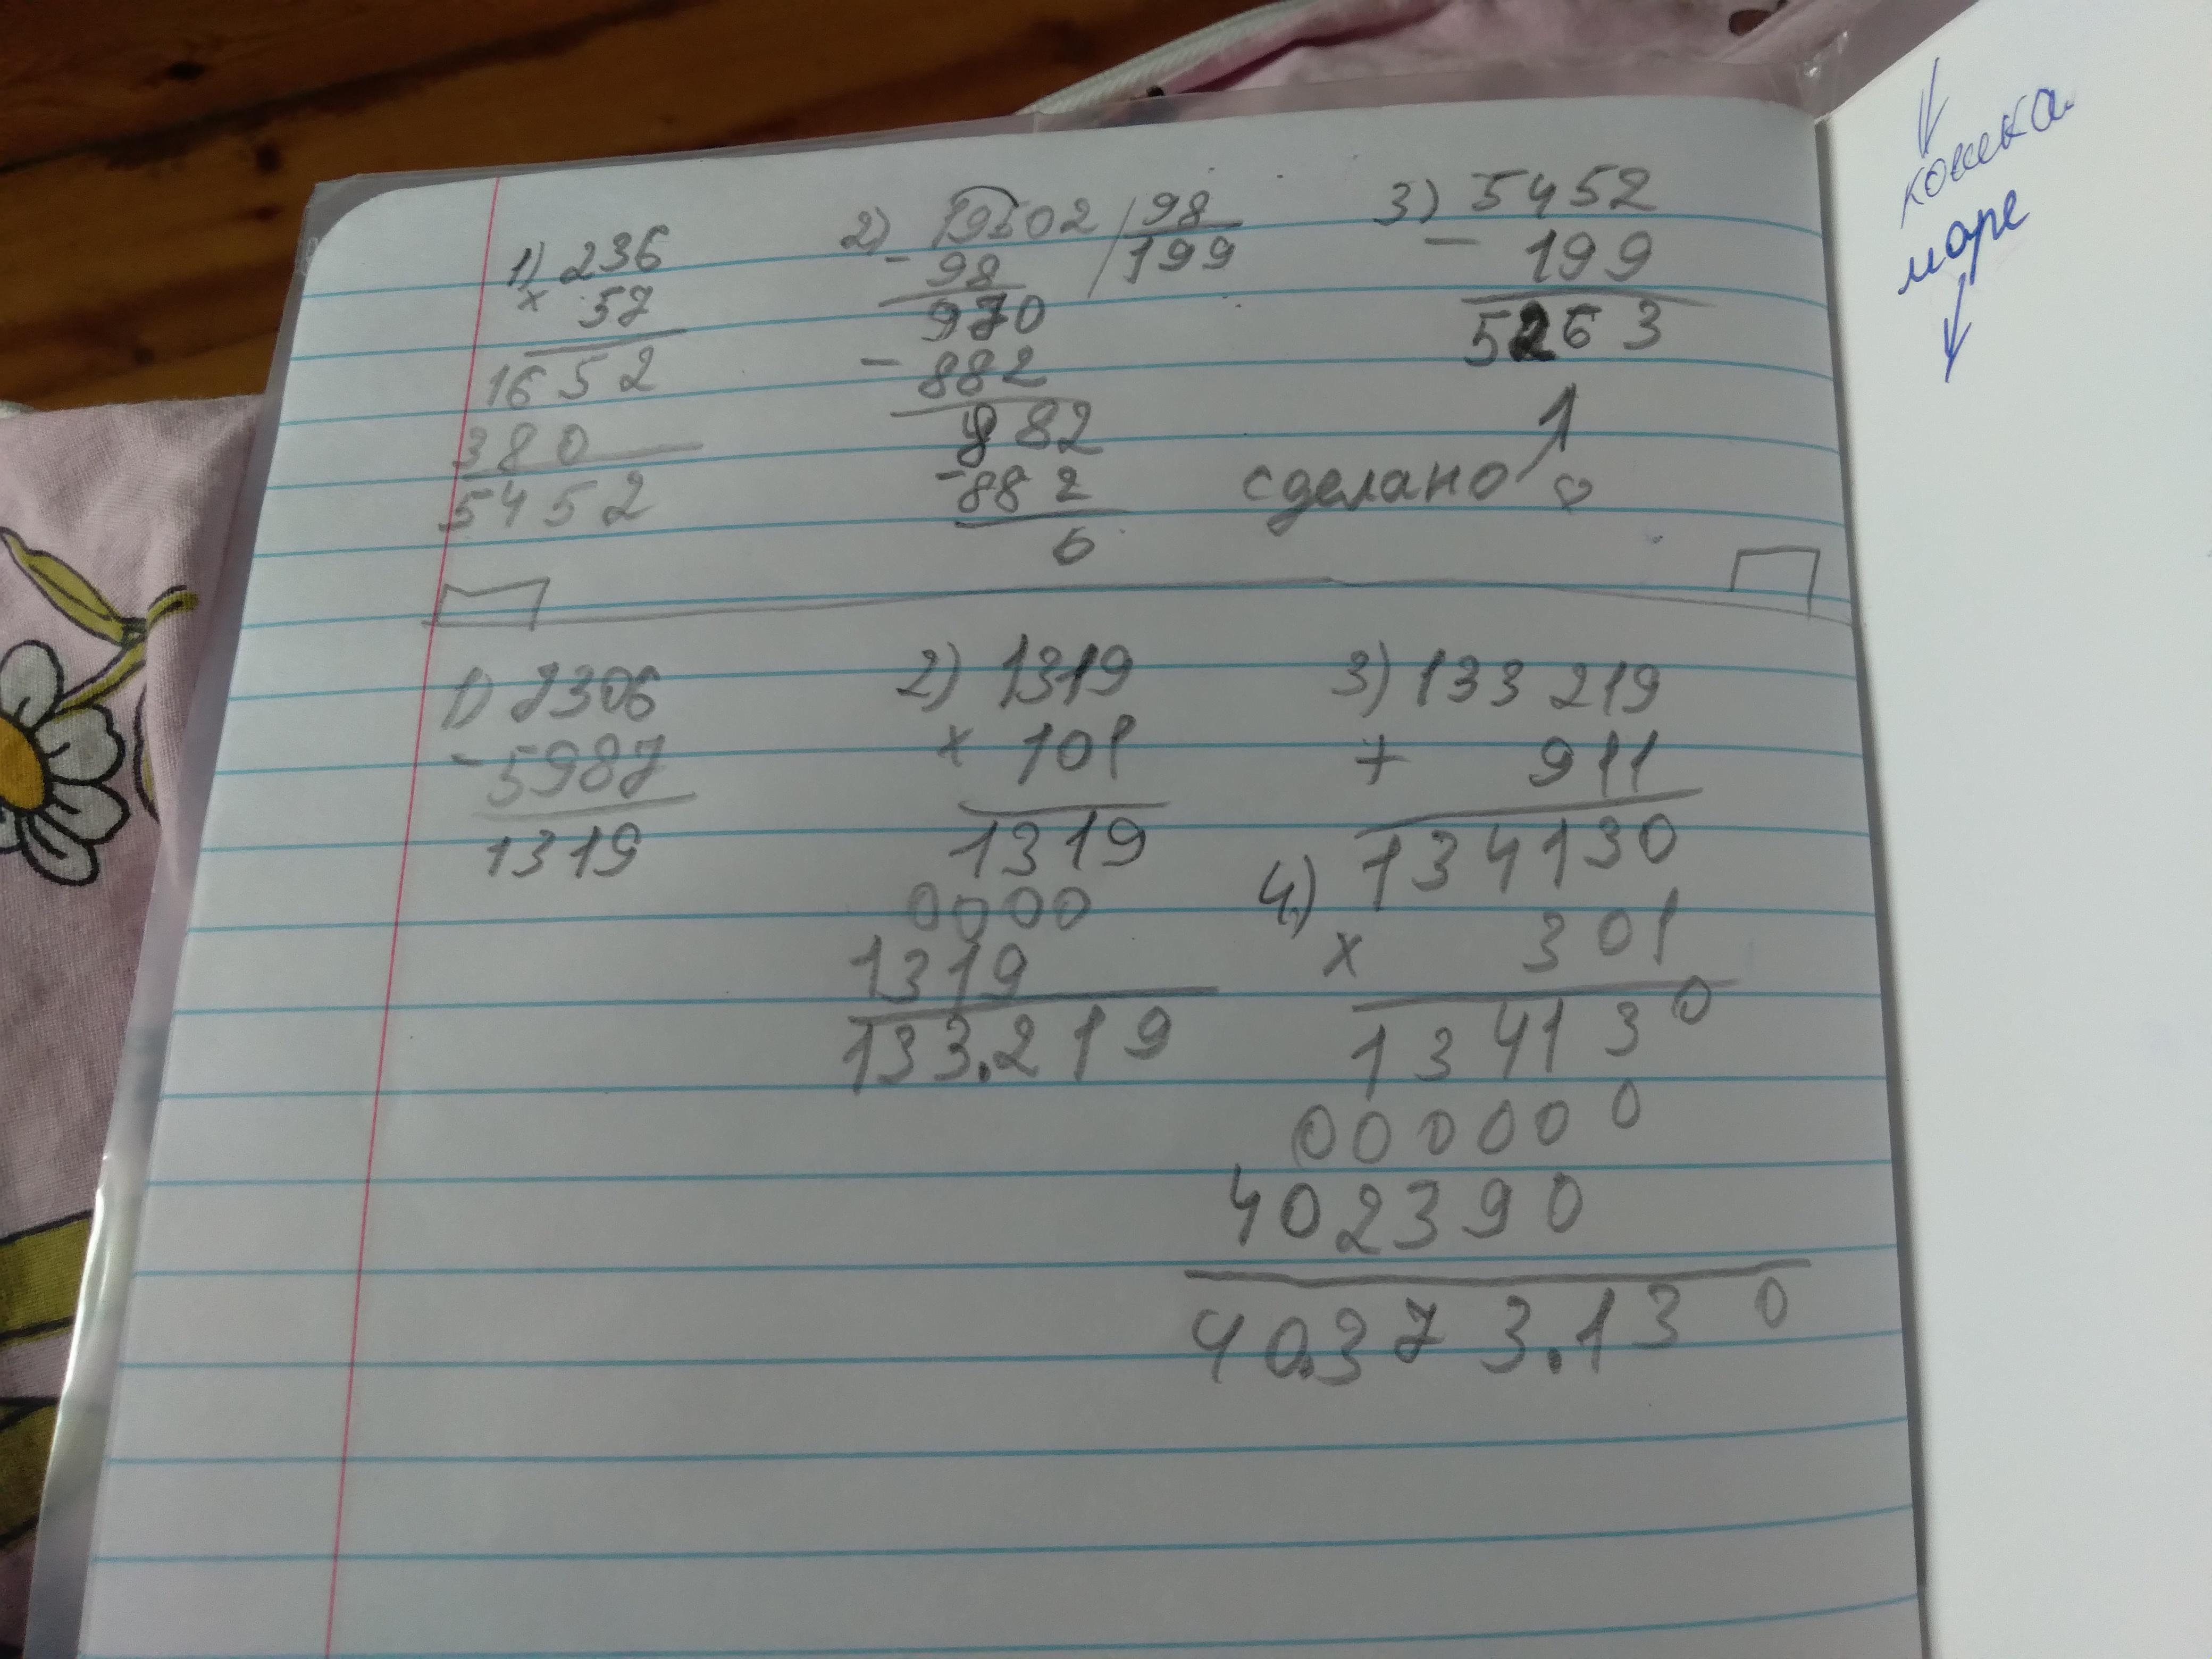 1) 236
× 57
1652
380
5452
2) 19502 | 98
199
- 98
970
- 882
882
- 882
0
3) 5452
- 199
5263
сделано !
1) 7306
- 5987
1319
2) 1319
× 101
1319
0000
1319
133.219
3) 133 219
+ 911
134130
4) × 301
134130
000000
402390
40.373.130
кошка
море